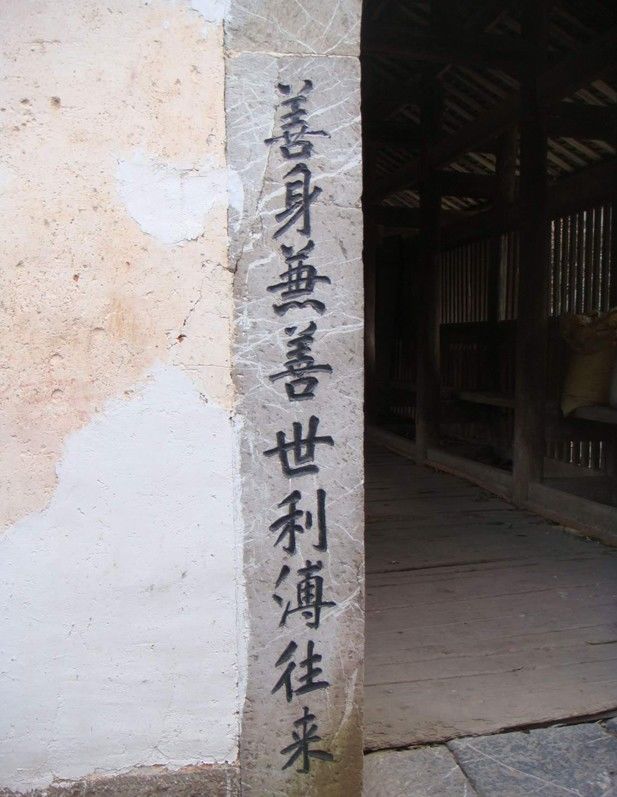 善身兼善世利溥往来